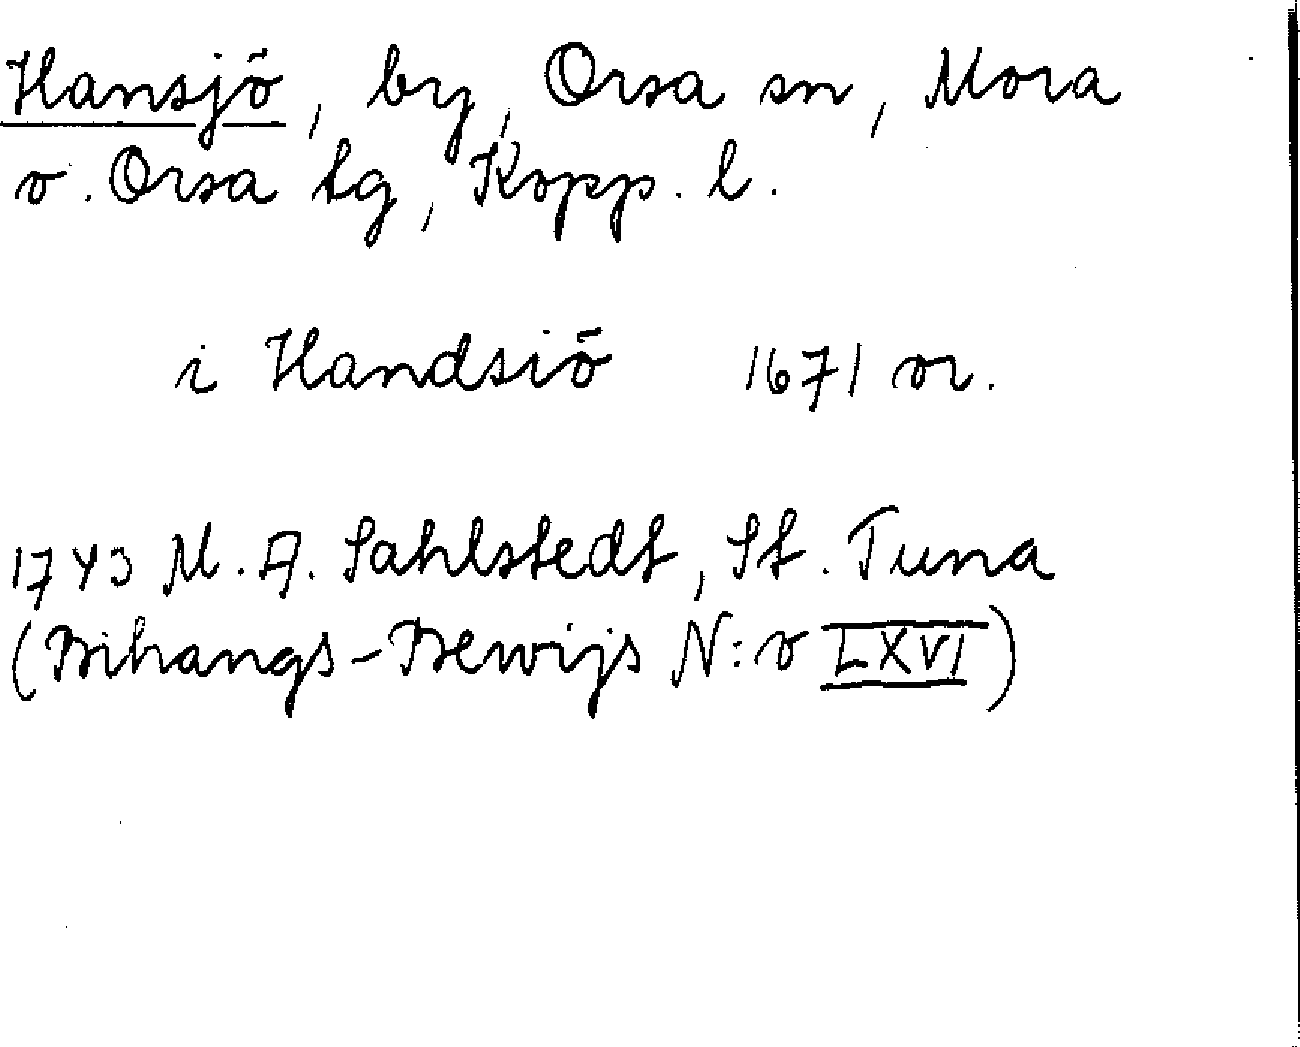 Hansjö, by, Orsa sn, Mora
o. Orsa tg, Kopp. l.
i Handsiö 1671 or.
1743 M. A. Sahlstedt, St. Tuna
(Bihangs-Bewijs N:o LXVI)